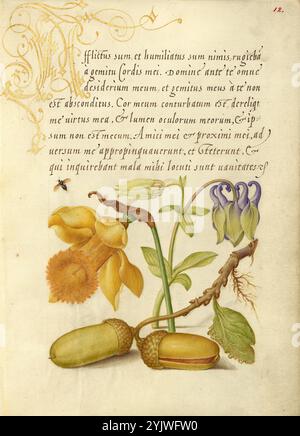 12.
Afflictus sum, et humiliatus sum nimis, rugieba
a gemitu Cordis mei. Domine ante te omne
desiderium meum, et gemitus meus à te non
est absconditus. Cor meum conturbatum est, dereliqt
me virtus mea, & lumen oculorum meorum, & ip
sum non est mecum. Amici mei & proximi mei, ad
versum me appropinquauerunt, et steterunt. &
qui inquirebant mala mihi locuti sunt vanitates
alamy
Image ID: 2YJWFW0
www.alamy.com